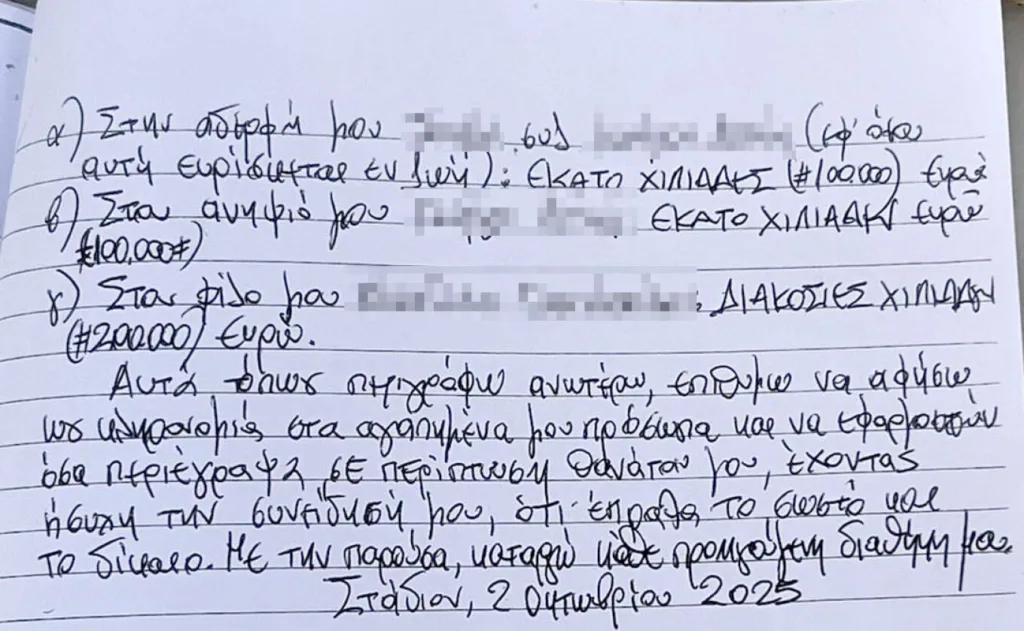 α) Στην αδερφή μου (εφ' όσον
αυτή ευρίσκεται εν ζωή): ΕΚΑΤΟ ΧΙΛΙΑΔΕΣ (#100.000) ευρώ
β) Στον ανηψιό μου ΕΚΑΤΟ ΧΙΛΙΑΔΕΣ ευρώ
(#100.000#)
γ) Στον φίλο μου ΔΙΑΚΟΣΙΕΣ ΧΙΛΙΑΔΕΣ
(#200.000) ευρώ.
Αυτά όπως περιγράφω ανωτέρω, επιθυμώ να αφήσω
ως κληρονομιά στα αγαπημένα μου πρόσωπα και να εφαρμοστούν
όσα περιέγραψα, σε περίπτωση θανάτου μου, έχοντας
ήσυχη την συνείδησή μου, ότι έπραξα το σωστό και
το δίκαιο. Με την παρούσα, καταργώ κάθε προηγούμενη διαθήκη μου.
Στάδιον, 2 Οκτωβρίου 2025